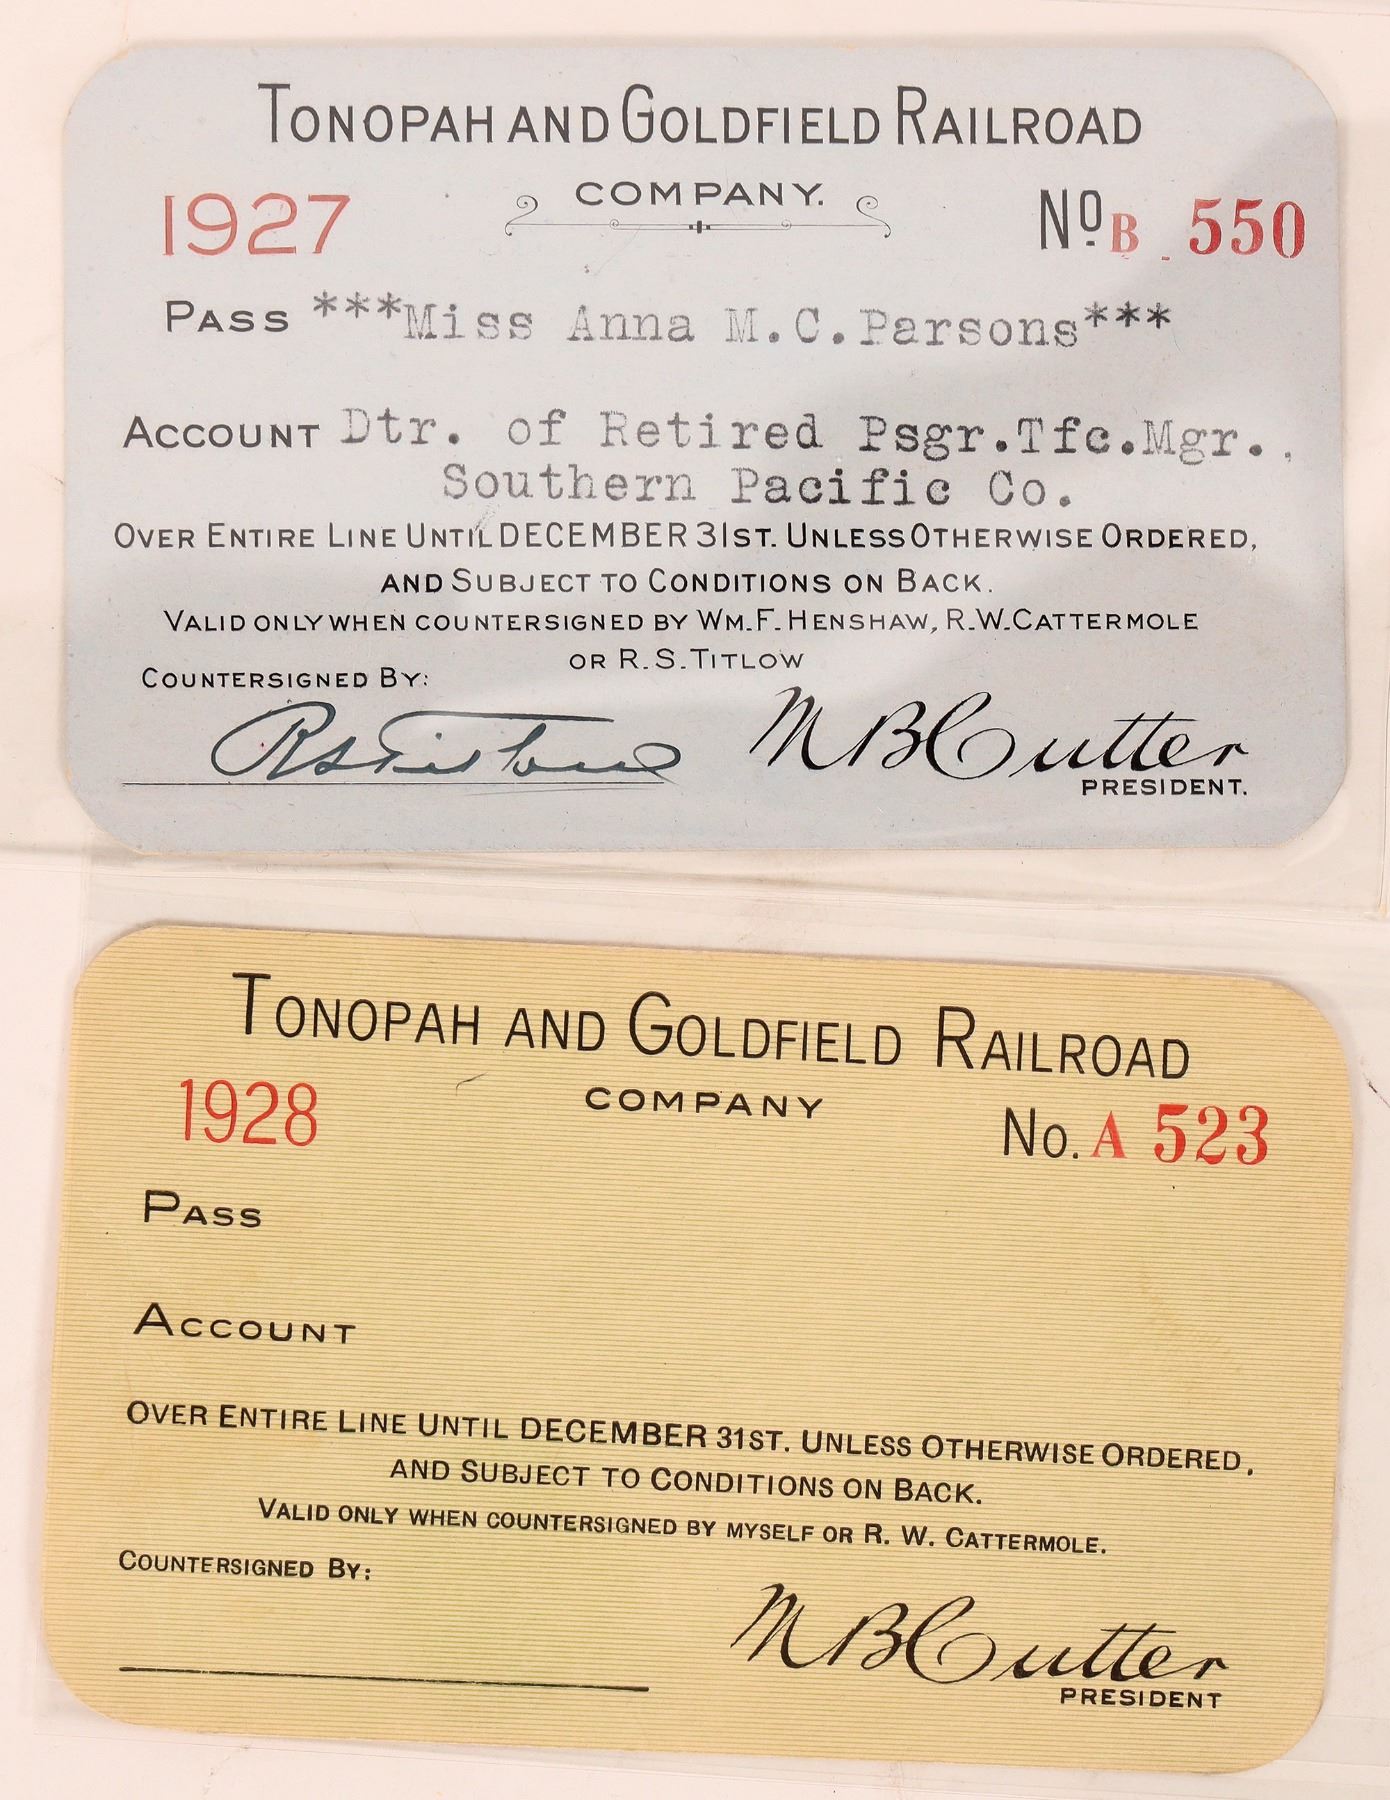 TONOPAH AND GOLDFIELD RAILROAD
COMPANY.
1927 No B 550
PASS ***Miss Anna M.C.Parsons***
ACCOUNT Dtr. of Retired Psgr.Tfc.Mgr.,
Southern Pacific Co.
OVER ENTIRE LINE UNTIL DECEMBER 31ST. UNLESS OTHERWISE ORDERED,
AND SUBJECT TO CONDITIONS ON BACK.
VALID ONLY WHEN COUNTERSIGNED BY WM.F.HENSHAW, R.W.CATTERMOLE
OR R.S.TITLOW
COUNTERSIGNED BY:
R S Titlow M B Cutter
PRESIDENT.
TONOPAH AND GOLDFIELD RAILROAD
COMPANY
1928 No. A 523
PASS
ACCOUNT
OVER ENTIRE LINE UNTIL DECEMBER 31ST. UNLESS OTHERWISE ORDERED,
AND SUBJECT TO CONDITIONS ON BACK.
VALID ONLY WHEN COUNTERSIGNED BY MYSELF OR R. W. CATTERMOLE.
COUNTERSIGNED BY:
M B Cutter
PRESIDENT